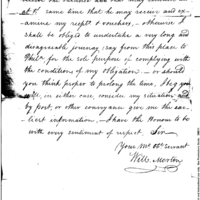 same time that he may receive and ex-
amine my rec.pts & vouchers – otherwise I
shall be obliged to undertake a very long and
disagreable journey, say from this place to
Phil.a for the sole purpose of complying with
the condition of my obligation – or should
you think proper to prolong the time, I beg you
will, in either case, consider my situation and
by post, or other conveyance give me the ear-
liest information – I have the Honour to be
with every sentiment of respect. Sir
Your Mo. Ob.t Servant
Will. Morton